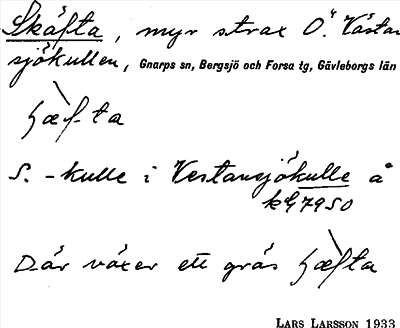 Skäfta, myr strax O. Västan
sjökullen, Gnarps sn, Bergsjö och Forsa tg, Gävleborgs län
hæfta
S. -kulle i Vestansjökulle å
kħ 7950
Där växer ett gräs hæfta
LARS LARSSON 1933